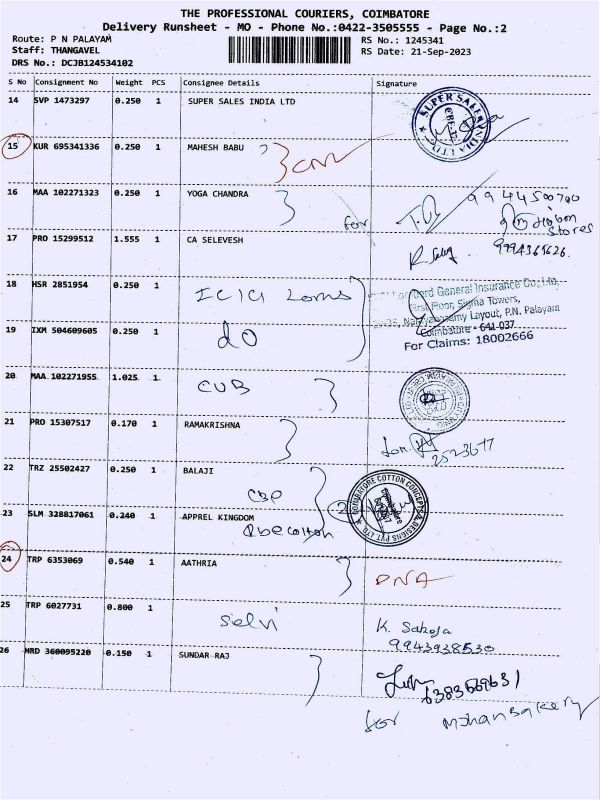 THE PROFESSIONAL COURIERS, COIMBATORE
Delivery Runsheet - MO - Phone No.:0422-3505555 - Page No.:2
Route: P N PALAYAM RS No.: 1245341
Staff: THANGAVEL RS Date: 21-Sep-2023
DRS No.: DCJB124534102
S No Consignment No Weight PCS Consignee Details Signature
14 SVP 1473297 0.250 1 SUPER SALES INDIA LTD
SUPER SALES INDIA LTD
15 KUR 695341336 0.250 1 MAHESH BABU
16 MAA 102271323 0.250 1 YOGA CHANDRA
for 9944500700
Stores
17 PRO 15299512 1.555 1 CA SELEVESH
9994365626
18 HSR 2851954 0.250 1 ICICI Loms
Lombard General Insurance Co. Ltd,
First Floor, Sigma Towers,
Narayanasamy Layout, P.N. Palayam
Coimbatore - 641 037
For Claims: 18002666
19 IXM 504609605 0.250 1 do
20 MAA 102271955 1.025 1 CUB
21 PRO 15307517 0.170 1 RAMAKRISHNA
2523677
22 TRZ 25502427 0.250 1 BALAJI
COIMBATORE COTTON CONCEPTS & DESIGNS PVT LTD
23 SLM 328817061 0.240 1 APPREL KINGDOM
24 TRP 6353069 0.540 1 AATHRIA
DNA
25 TRP 6027731 0.800 1
Selvi K. Saroja
9943938530
26 MRD 360095220 0.150 1 SUNDAR RAJ
6383569631
for